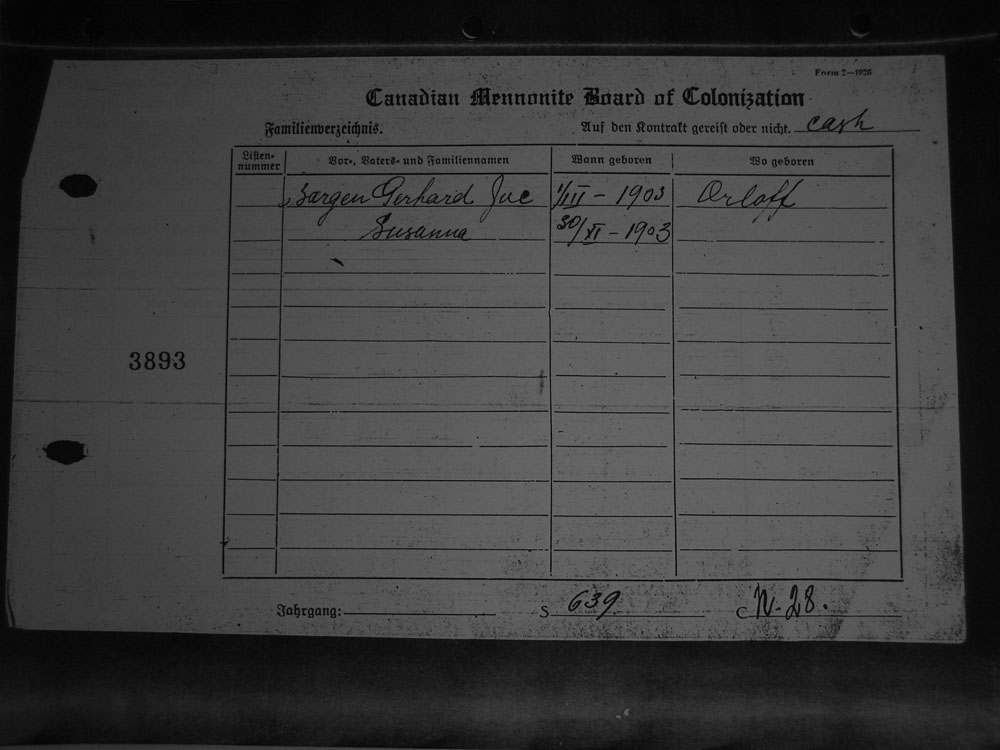 Form 2—1926
Canadian Mennonite Board of Colonization
Familienverzeichnis.
Auf den Kontrakt gereist oder nicht. cash
Listen-nummer Vor-, Vaters- und Familiennamen Wann geboren Wo geboren
Gerhard 1/III - 1903 Orloff
Susanna 30/XI - 1903
3893
Jahrgang: S 639 C N-28.